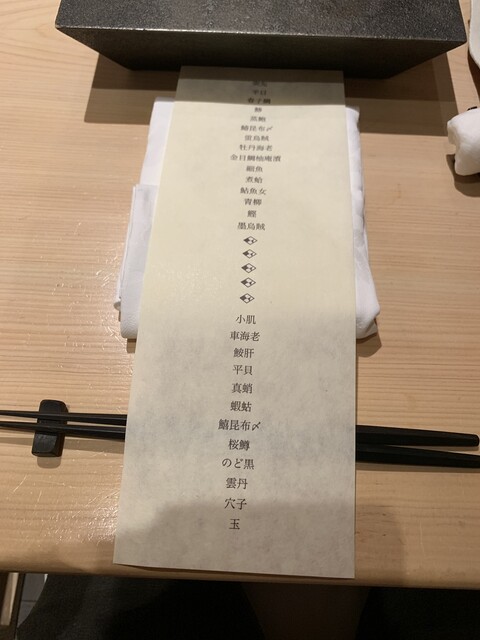 黒鮑
鱚昆布〆
蛍烏賊
牡丹海老
金目鯛柚庵漬
銀魚
煮蛤
鮎魚女
青柳
鰹
墨烏賊
小肌
車海老
鮟肝
平貝
真蛸
蝦蛄
鱚昆布〆
桜鱒
のど黒
雲丹
穴子
玉